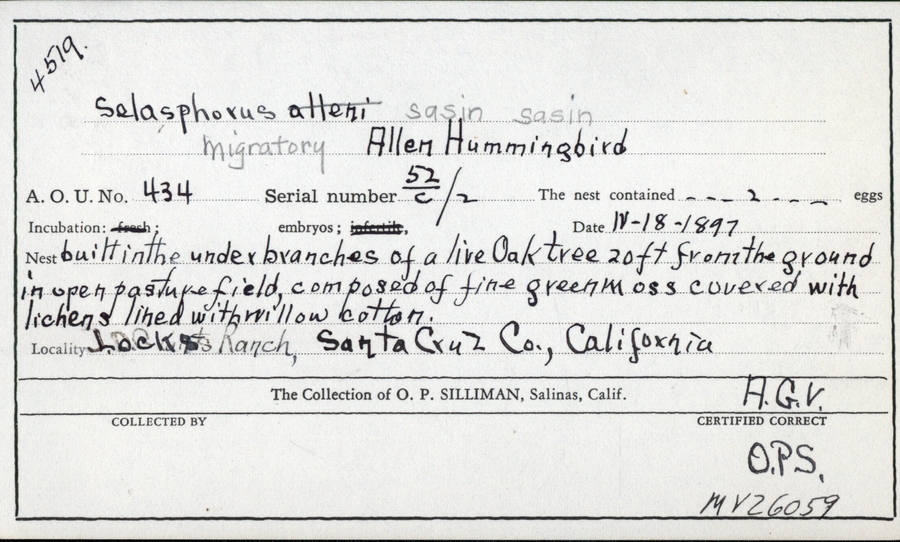 4519.
Selasphorus alleni sasin sasin
Migratory Allen Hummingbird
A. O. U. No. 434 Serial number 52/c /2 The nest contained - - - 2 - - - eggs
Incubation: fresh; embryos; infertile, Date IV-18-1897
Nest built in the under branches of a live Oak tree 20ft from the ground
in open pasture field, composed of fine green moss covered with
lichens lined with willow cotton.
Locality Ranch, Santa Cruz Co., California
The Collection of O. P. SILLIMAN, Salinas, Calif. A.G.V.
COLLECTED BY CERTIFIED CORRECT
O.P.S.
MVZ6059